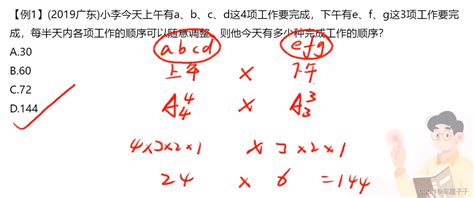 【例1】(2019广东)小李今天上午有a、b、c、d这4项工作要完成，下午有e、f、g这3项工作要完
成，每半天内各项工作的顺序可以随意调整，则他今天有多少种完成工作的顺序？
A.30
B.60
C.72
D.144
a b c d e f g
上午 × 下午
A₄⁴ × A₃³
4×3×2×1 × 3×2×1
24 × 6 =144